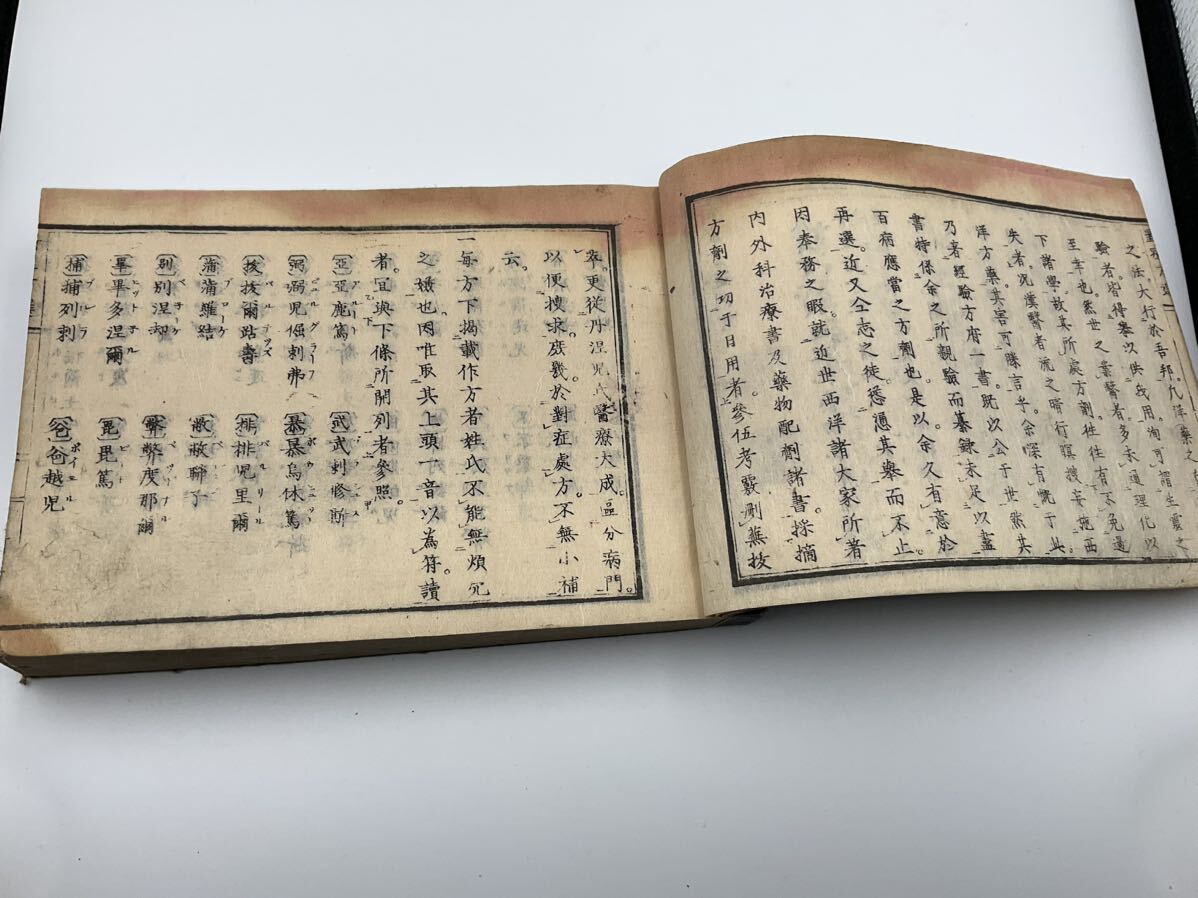 之法大行於吾邦凡洋藥之
驗者皆得擧以供我用洵可謂生靈之
至幸也然世之業醫者多未通理化以
下諸學故其所處方劑往往有不免過
失者況漢醫者流之暗行瞑搜妄施西
洋方藥其害可勝言乎余深有慨于此
乃著經驗方府一書既以公于世然其
書特係余之所親驗而纂錄未足以盡
百病應當之方劑也是以余久有意於
再選近又仝志之徒慫慂其擧而不止
因奉務之暇就近世西洋諸大家所著
内外科治療書及藥物配劑諸書採摘
方劑之功于日用者參伍考覈刪蕪拔
萃更從丹涅児氏醫療大成區分病門。
以便搜求。庶幾於對症處方。不無小補
云。
一每方下揭載作方者姓氏不能無煩冗
之嫌也。因唯取其上頭一音以為符。讀
者。宜與下條所開列者參照。
〔亞〕亞鹿篤 〔武〕武剌修斯
〔弼〕弼児倔剌弗 バルグライフ 〔暴〕暴烏休篤
〔拔〕拔爾踮壽 〔排〕排児里爾 バリール
〔蒲〕蒲維結 〔敝〕敝聯了
〔別〕別涅却 〔弊〕弊度那爾
〔畢〕畢多涅爾 〔毘〕毘篤 ビト
〔捕〕捕列剌 ブレラ 〔爸〕爸越児 ポイエル